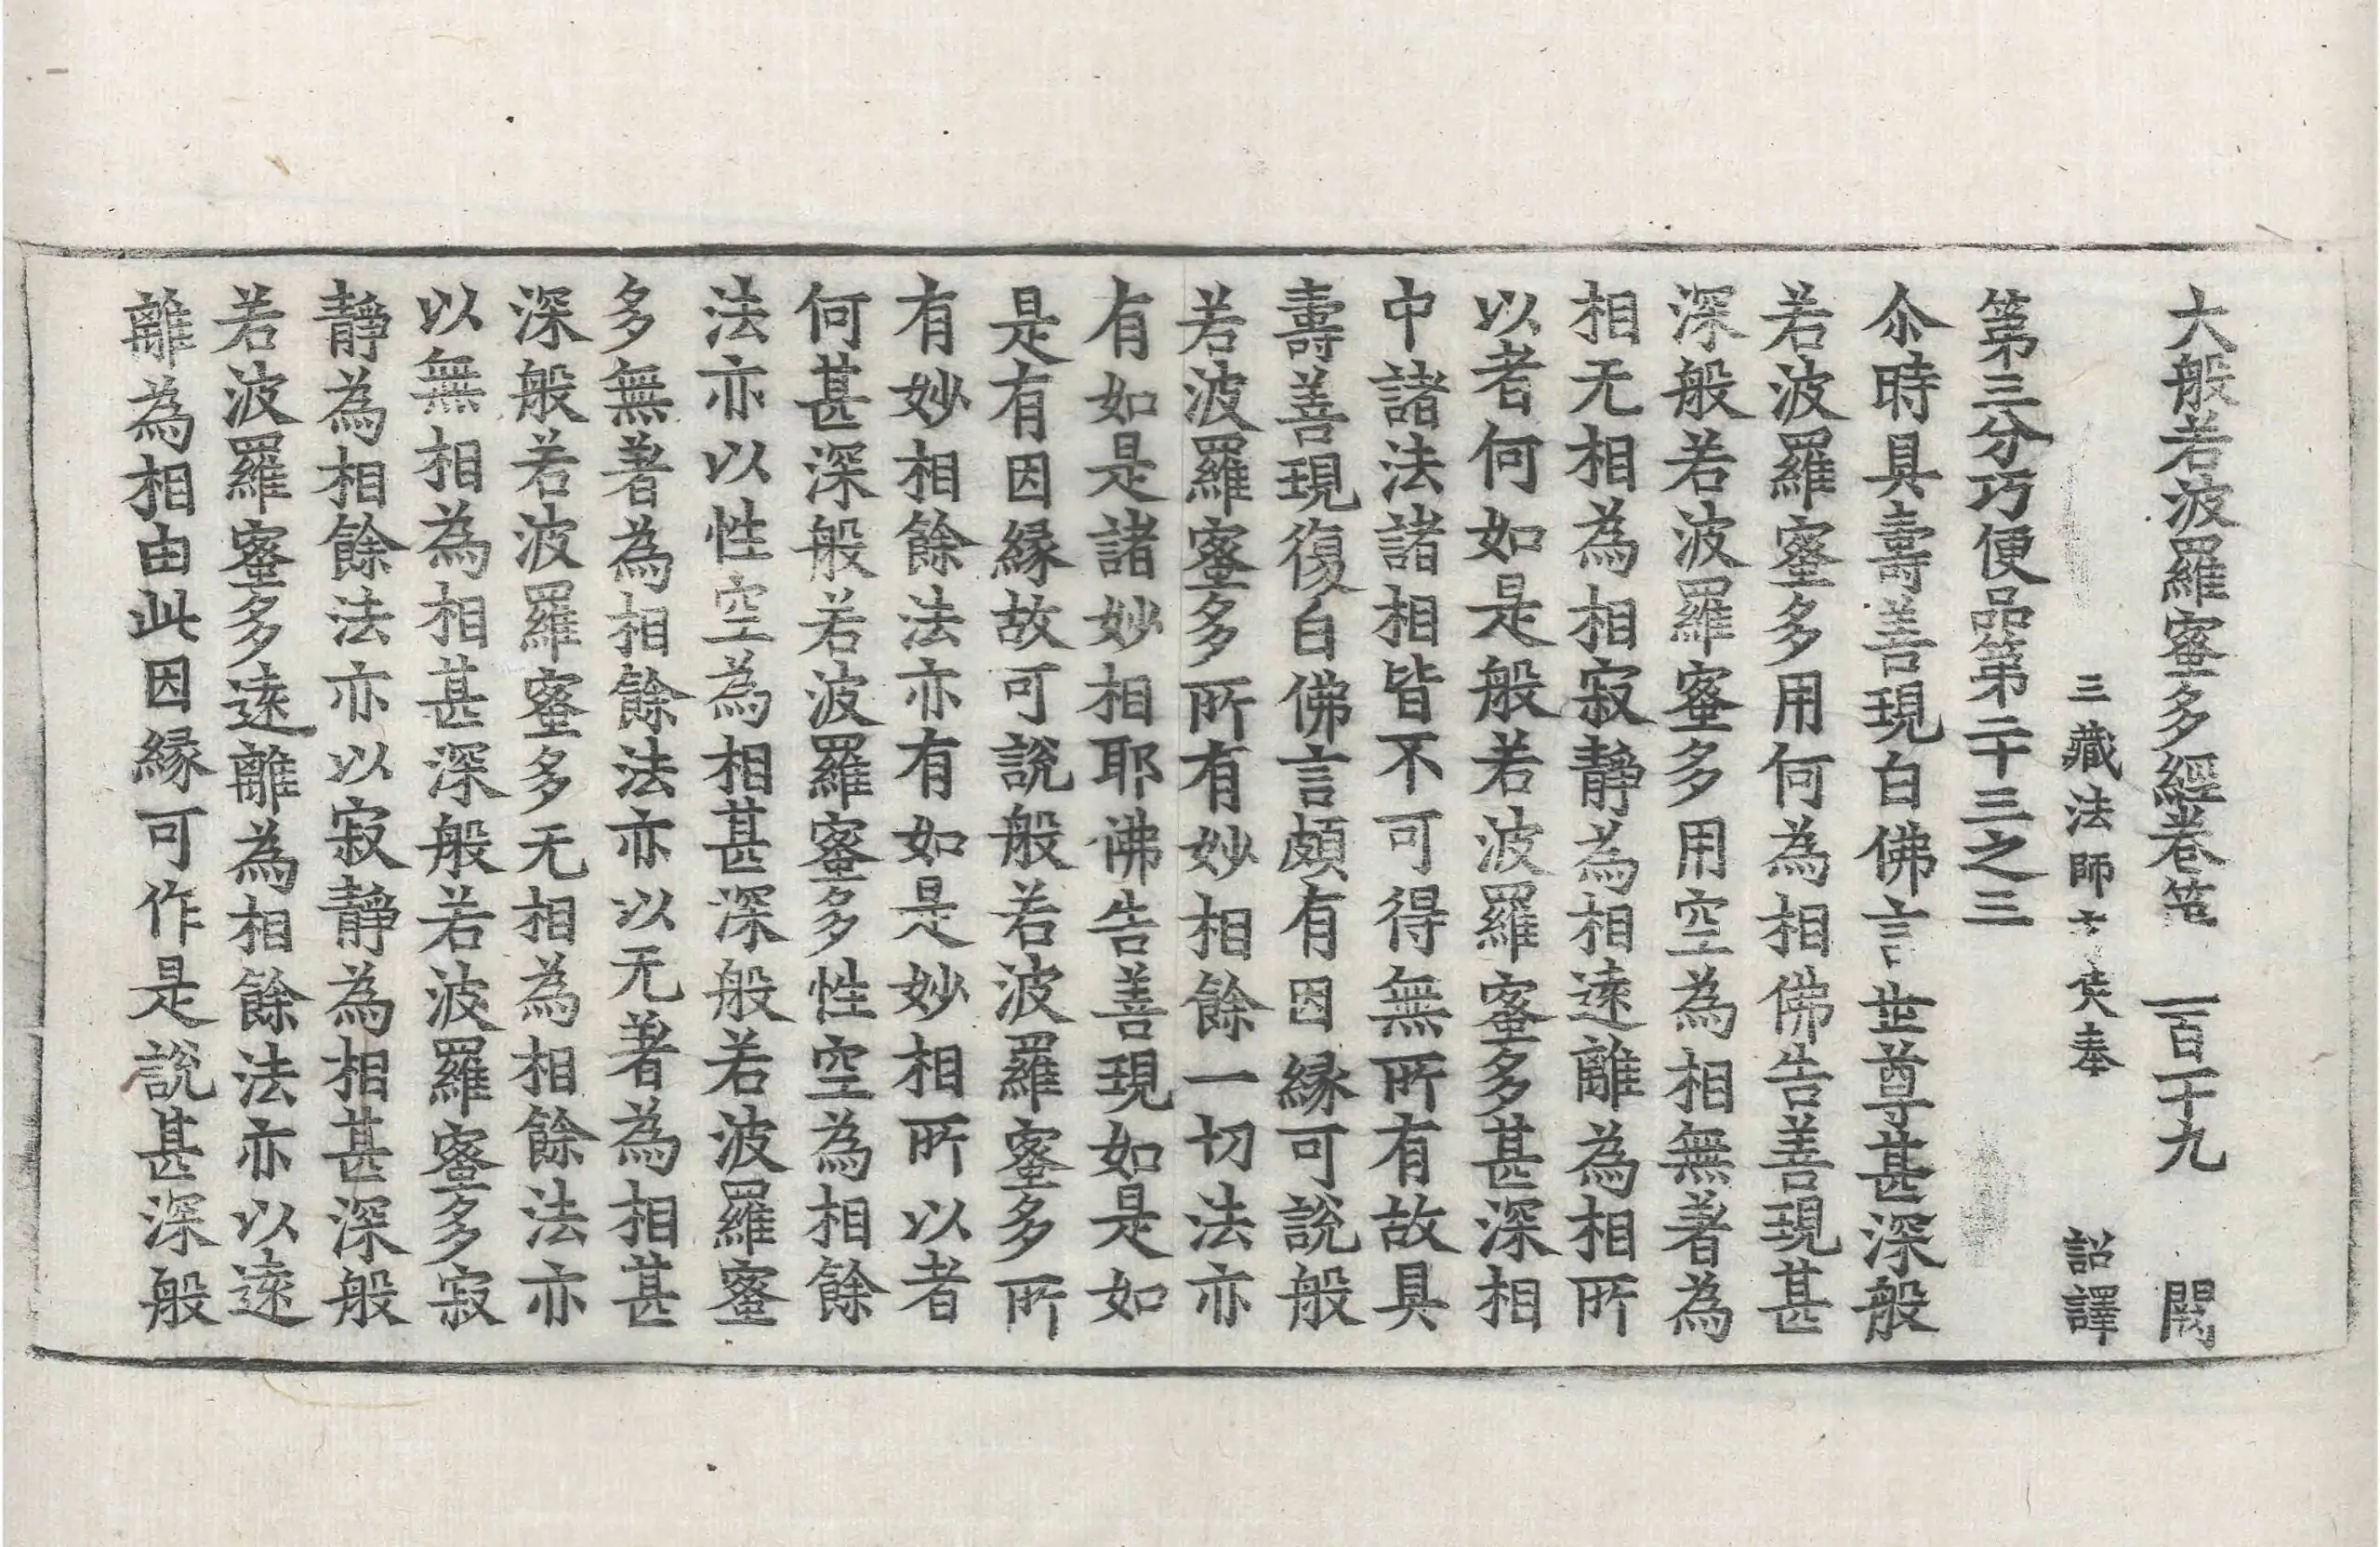 大般若波羅蜜多經卷 一百二十九 闕
三藏法師玄奘奉 詔譯
第三分巧便品第二十三之三
尒時具壽善現白佛言世尊甚深般
若波羅蜜多用何為相佛告善現甚
深般若波羅蜜多用空為相無著為
相无相為相寂靜為相遠離為相所
以者何如是般若波羅蜜多甚深相
中諸法諸相皆不可得無所有故具
壽善現復白佛言頗有因緣可說般
若波羅蜜多所有妙相餘一切法亦
有如是諸妙相耶佛告善現如是如
是有因緣故可說般若波羅蜜多所
有妙相餘法亦有如是妙相所以者
何甚深般若波羅蜜多性空為相餘
法亦以性空為相甚深般若波羅蜜
多無著為相餘法亦以无著為相甚
深般若波羅蜜多无相為相餘法亦
以無相為相甚深般若波羅蜜多寂
靜為相餘法亦以寂靜為相甚深般
若波羅蜜多遠離為相餘法亦以遠
離為相由此因緣可作是說甚深般